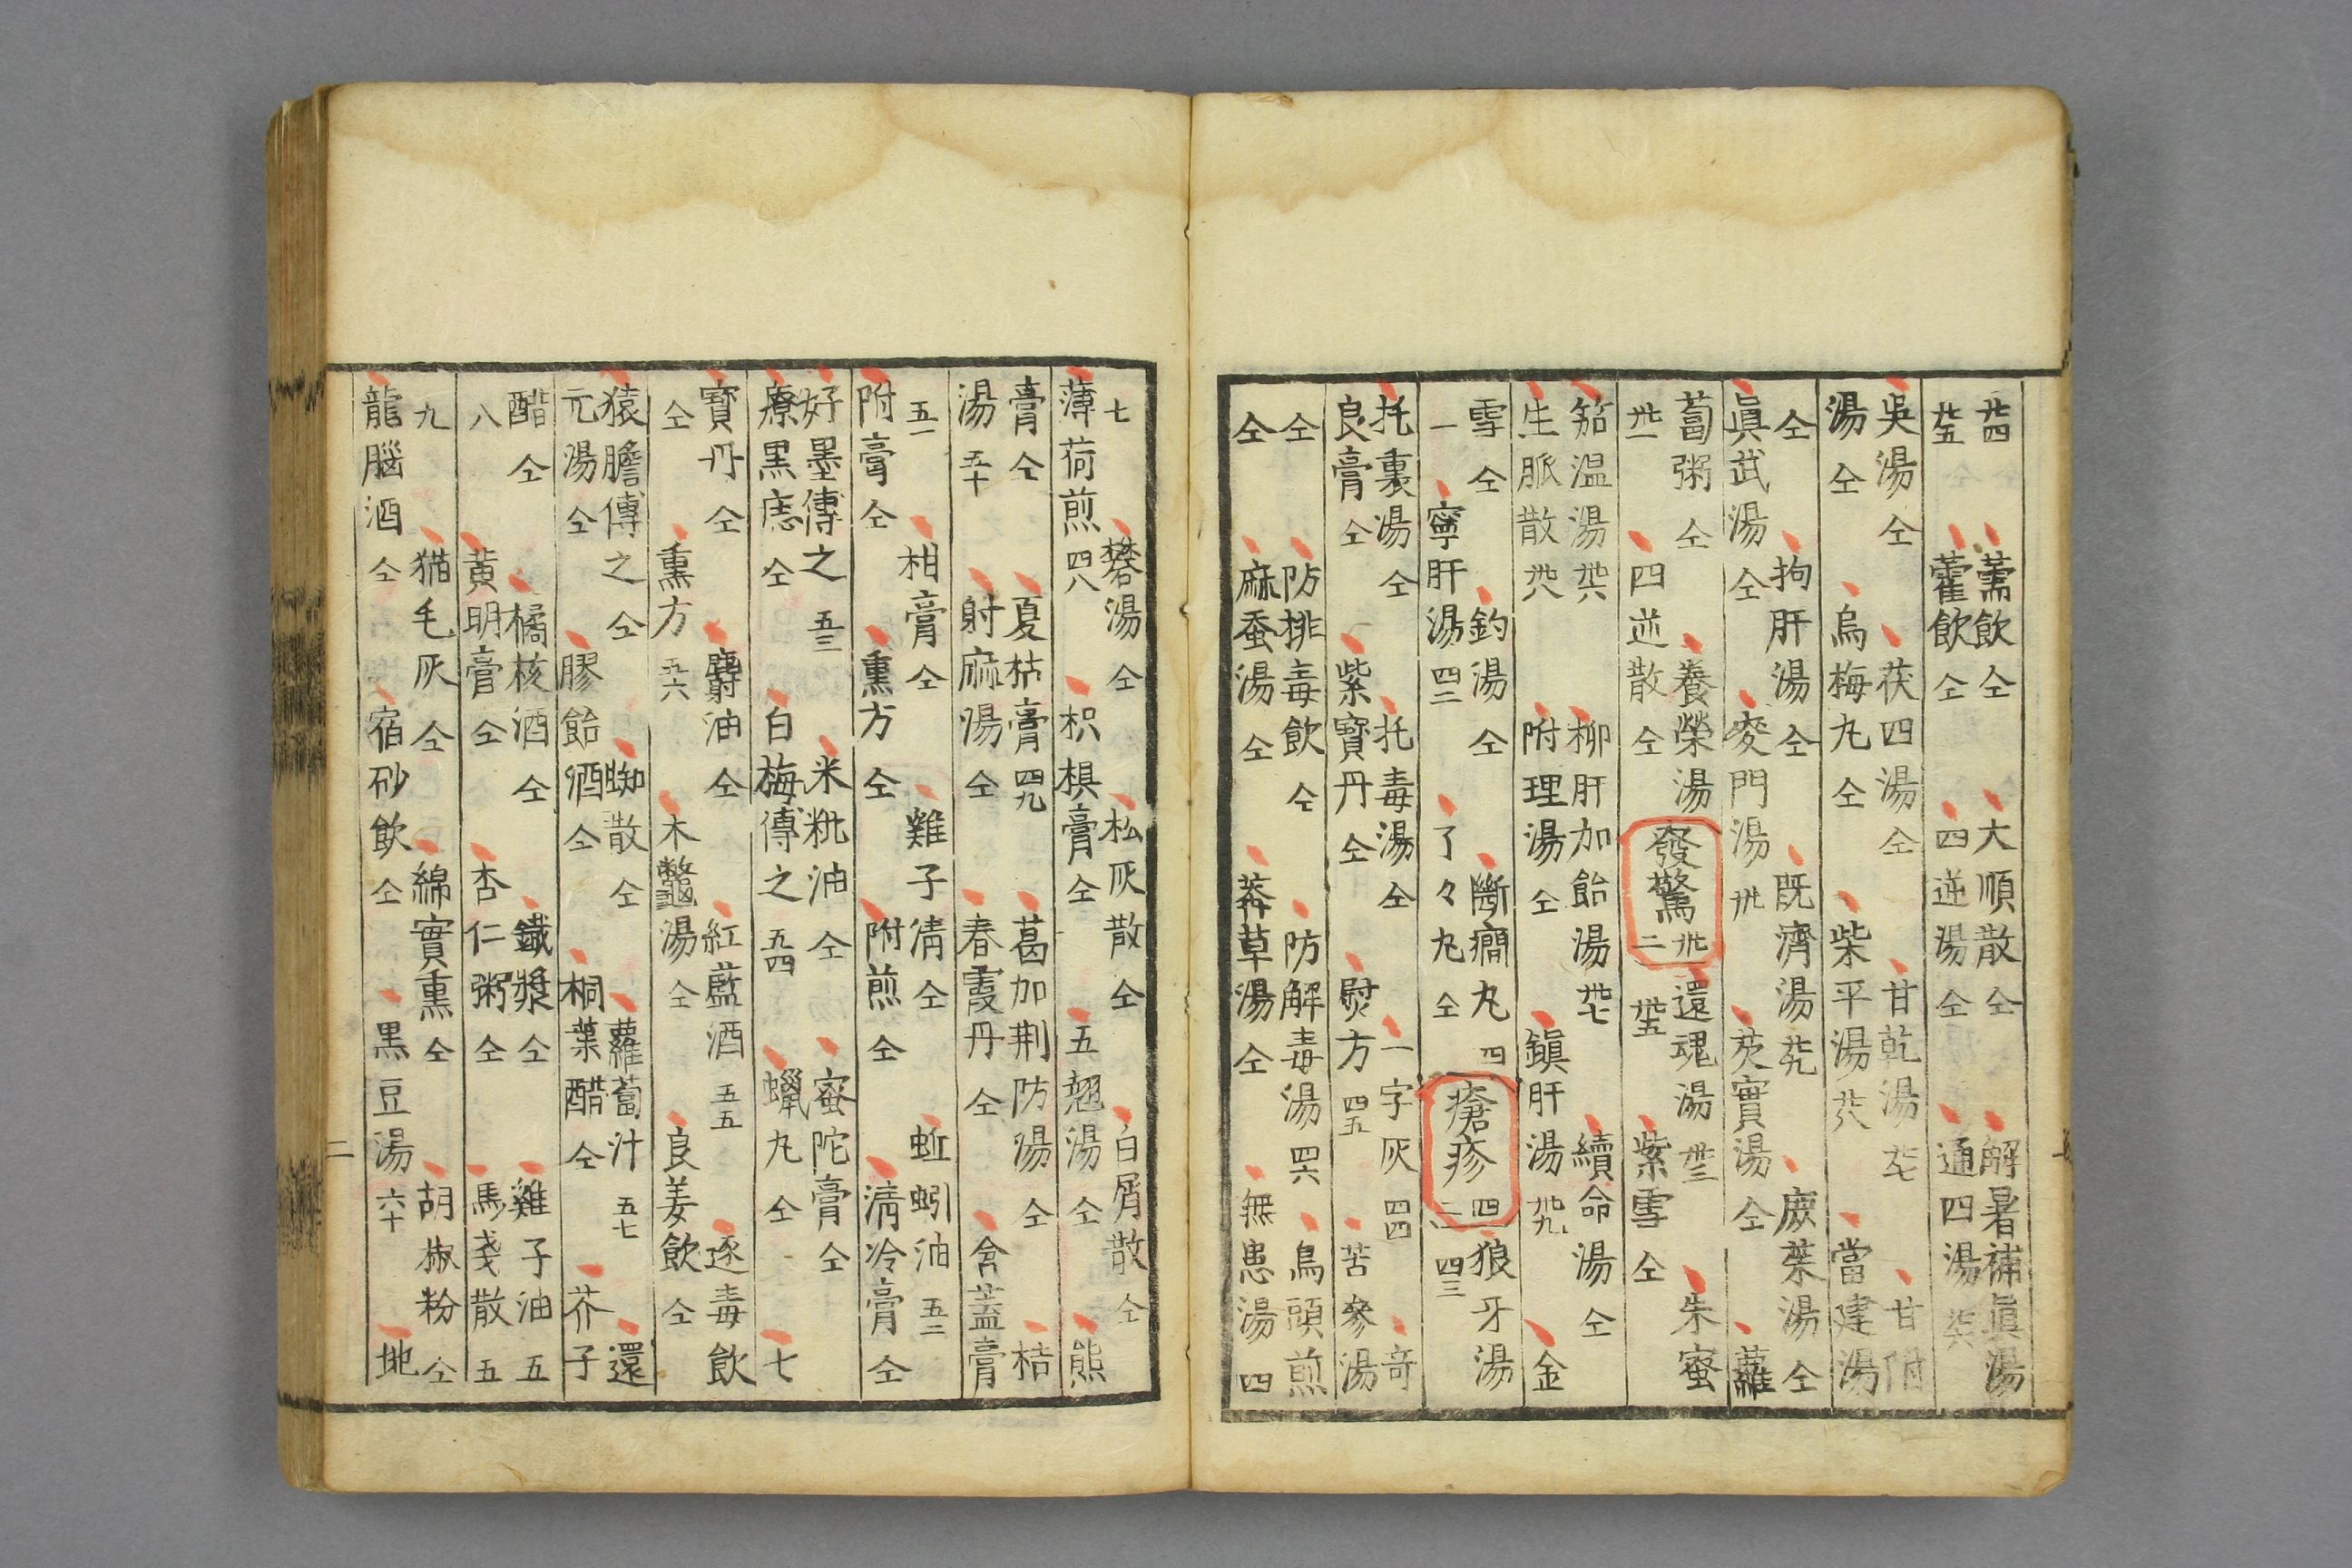 廿四 薷飲仝 大順散仝 解暑補眞湯
廿五 藿飲仝 四逆湯仝 通四湯 廿六
吳湯仝 茯四湯仝 甘乾湯 廿七 甘附
湯仝 烏梅丸仝 柴平湯 廿八 當建湯
仝 拘肝湯仝 既濟湯 廿九 蕨葉湯仝
眞武湯仝 麥門湯 卅 芡實湯仝 蘿
蔔粥仝 養榮湯 發驚 卅二 還魂湯 卅三 朱蜜
卅一 四逆散仝 卅五 紫雪仝
笳温湯 卅六 柳肝加飴湯 卅七 續命湯仝
生脈散 卅八 附理湯仝 鎭肝湯 卅九 金
雪仝 釣湯仝 斷癇丸 四 瘡疹 四二 狼牙湯
一 寧肝湯 四二 了々丸仝 四三
托裏湯仝 托毒湯仝 一字灰 四四 奇
良膏仝 紫寶丹仝 熨方 四五 苦參湯
仝 防排毒飲仝 防解毒湯 四六 鳥頭煎
仝 麻蚕湯仝 莽草湯仝 無患湯 四
七 礬湯仝 松灰散仝 白屑散仝
薄荷煎 四八 枳椇膏仝 五翹湯仝 熊
膏仝 夏枯膏 四九 葛加荆防湯仝 桔
湯 五十 射麻湯仝 春霞丹仝 含盖膏
五一 柑膏仝 雞子清仝 蚯蚓油 五二
附膏仝 熏方仝 附煎仝 清冷膏仝
好墨傅之 五三 米粃油仝 蜜陀膏仝
療黒痣仝 白梅傅之 五四 蠟丸仝 七
寳丹仝 麝油仝 紅藍酒 五五 逐毒飲
仝 熏方 五六 木鼈湯仝 良姜飲仝
猿膽傅之仝 蜘散仝 蘿蔔汁 五七 還
元湯仝 膠飴酒仝 桐葉醋仝 芥子
醋仝 橘核酒仝 鐵漿仝 雞子油 五
八 黄明膏仝 杏仁粥仝 馬戔散 五
九 猫毛灰仝 綿實熏仝 胡椒粉仝
龍腦酒仝 宿砂飲仝 黒豆湯 六十 地
二